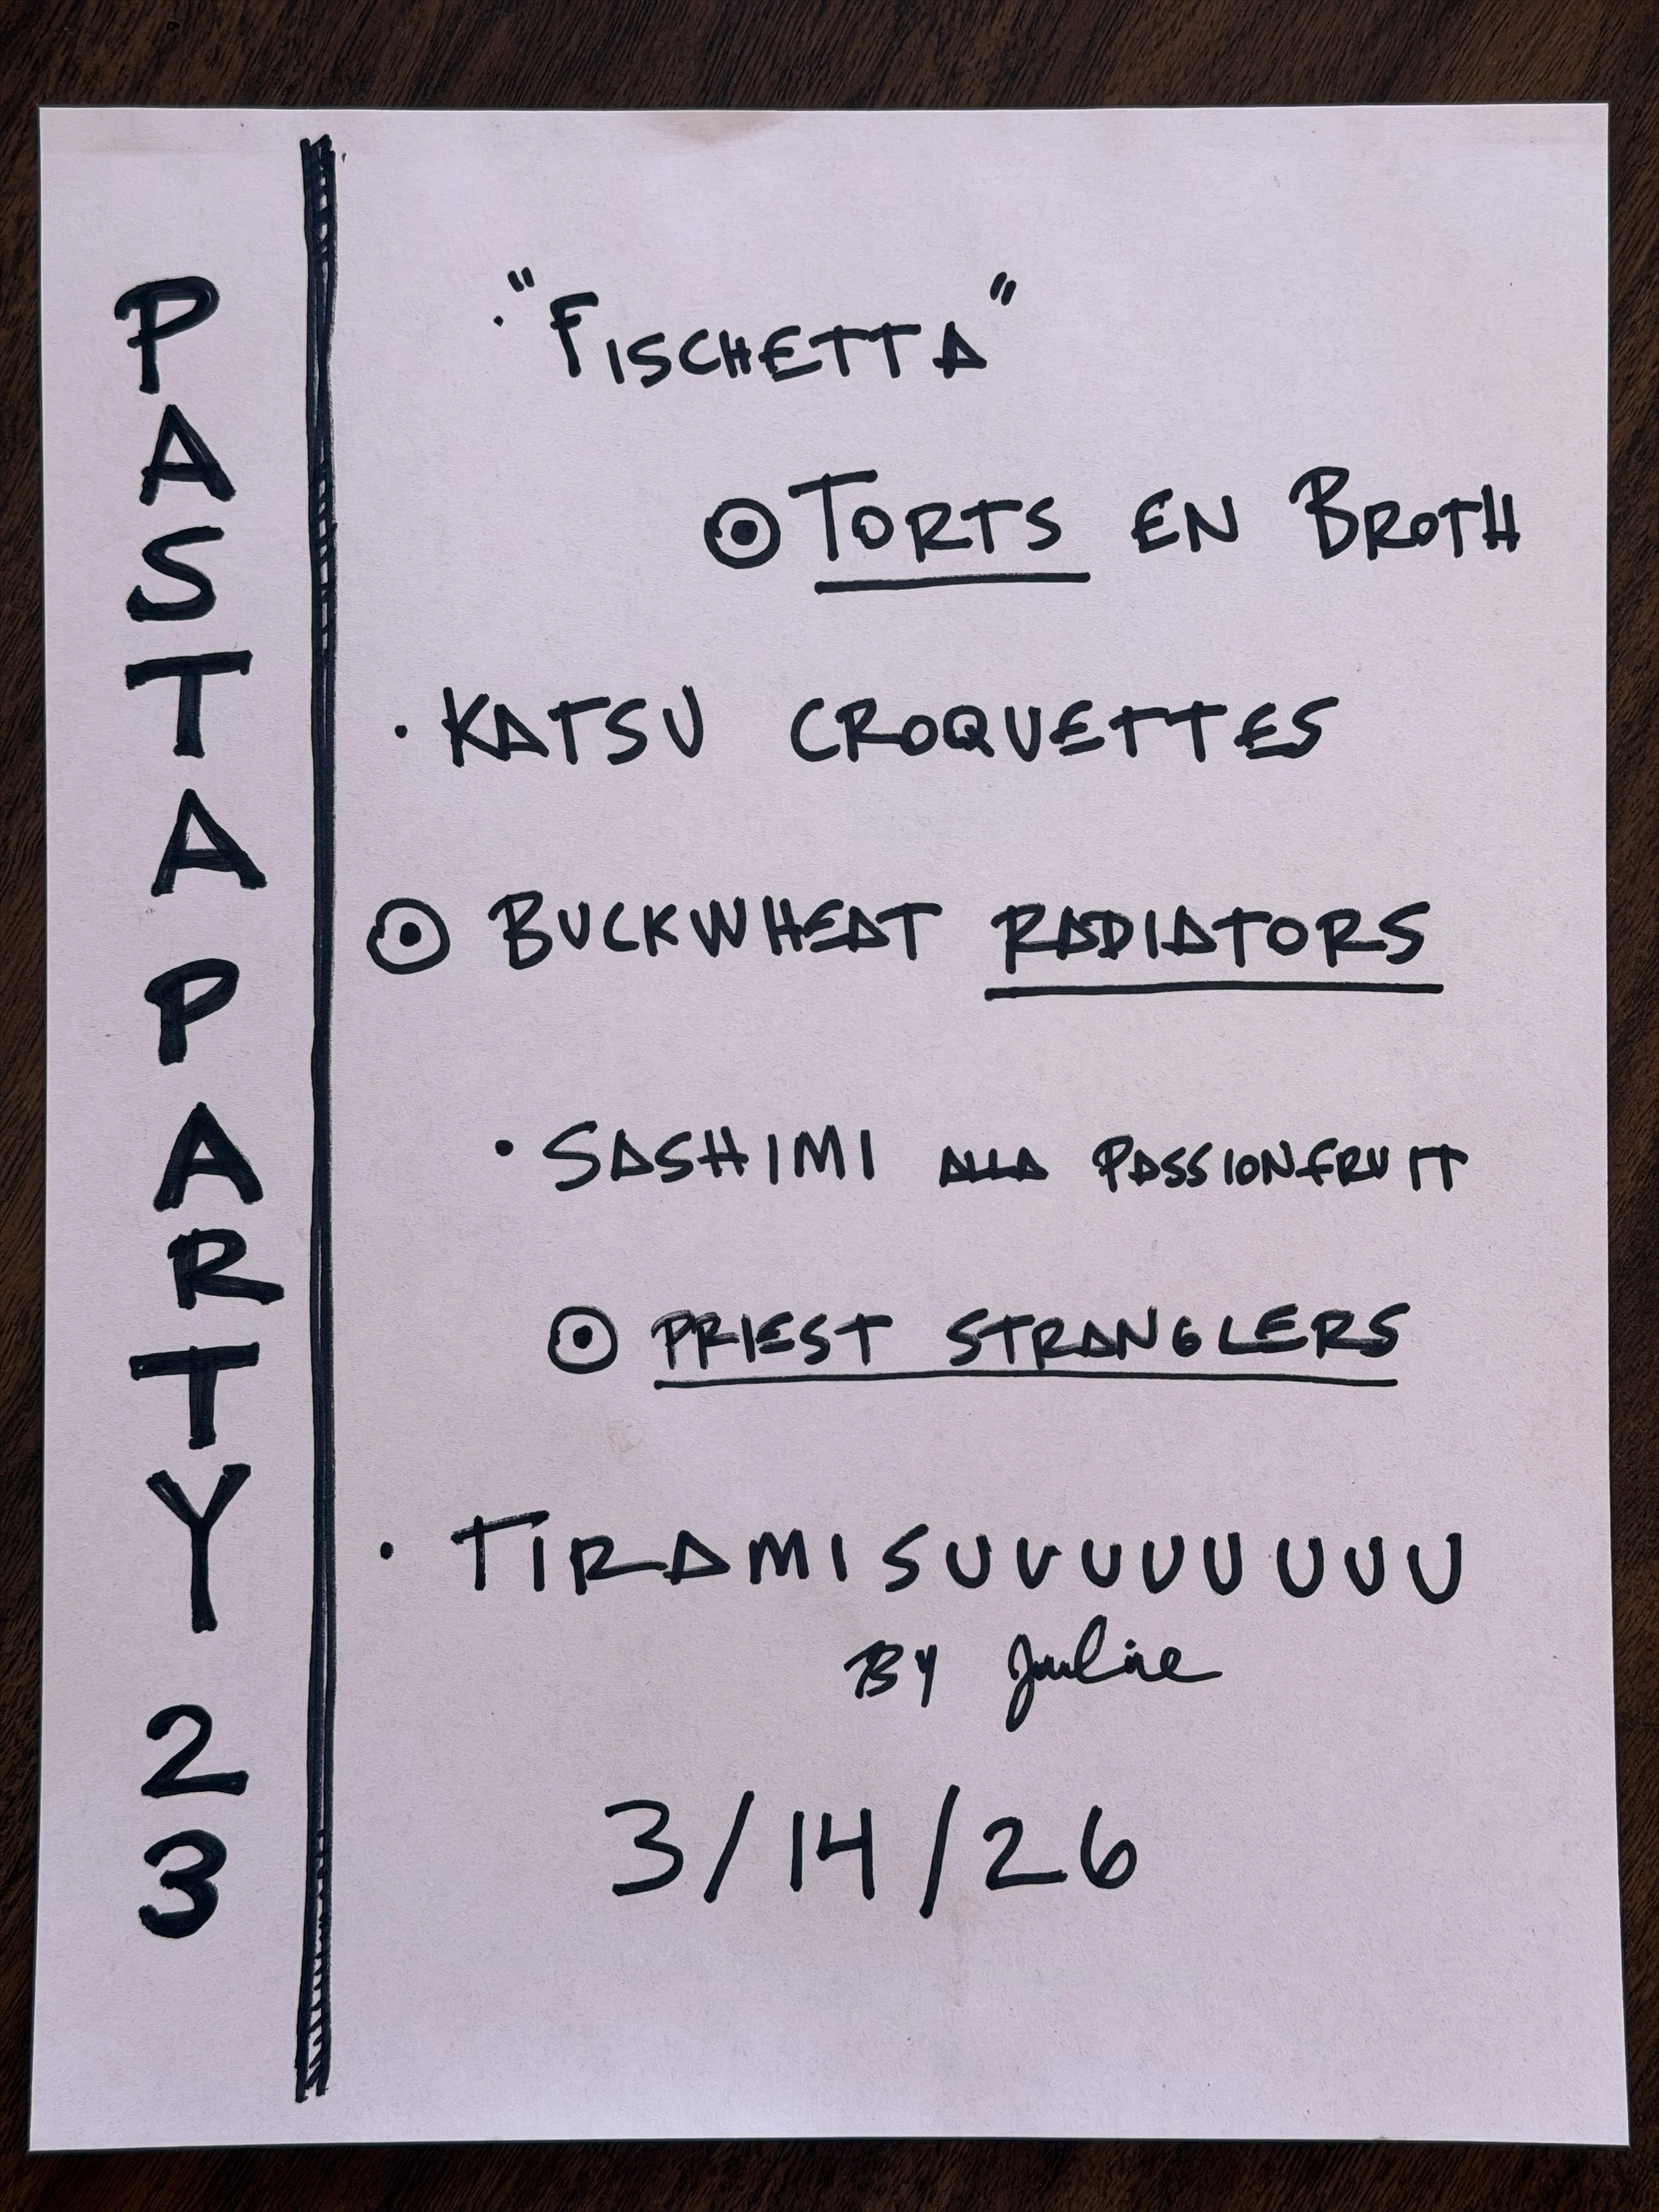 PASTA PARTY 23
· "FISCHETTA"
⊙ TORTS EN BROTH
· KATSU CROQUETTES
⊙ BUCKWHEAT RADIATORS
· SASHIMI ALLA PASSIONFRUIT
⊙ PRIEST STRANGLERS
· TIRAMISUUUUUUUUU
BY Julie
3/14/26